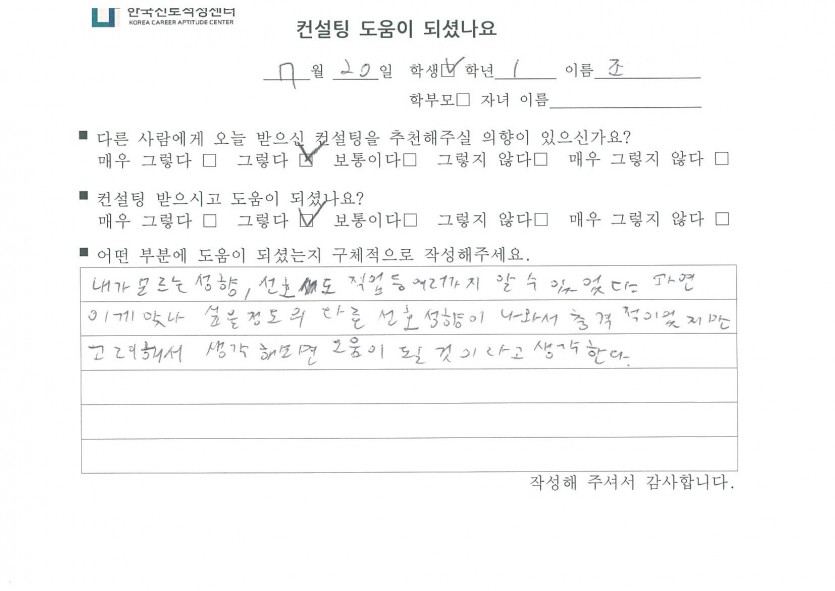 한국진로적성센터
KOREA CAREER APTITUDE CENTER
컨설팅 도움이 되셨나요
7월 20일 학생☑ 학년 1 이름 조
학부모□ 자녀 이름
■ 다른 사람에게 오늘 받으신 컨설팅을 추천해주실 의향이 있으신가요?
매우 그렇다 □ 그렇다 ☑ 보통이다□ 그렇지 않다□ 매우 그렇지 않다 □
■ 컨설팅 받으시고 도움이 되셨나요?
매우 그렇다 □ 그렇다 ☑ 보통이다□ 그렇지 않다□ 매우 그렇지 않다 □
■ 어떤 부분에 도움이 되셨는지 구체적으로 작성해주세요.
내가 모르는 성향, 선호도 직업등 여러가지 알 수 있었다 과연
이게 맞나 싶을정도의 다른 선호성향이 나와서 충격적이었지만
고려해서 생각해보면 도움이 될 것이라고 생각한다.
작성해 주셔서 감사합니다.